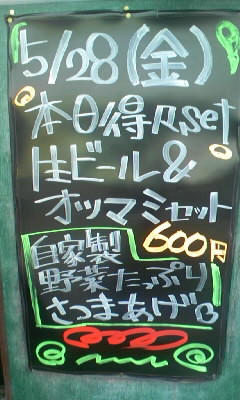 5/28(金)
本日得々set
生ビール&
オツマミセット
600円
自家製
野菜たっぷり
さつまあげ